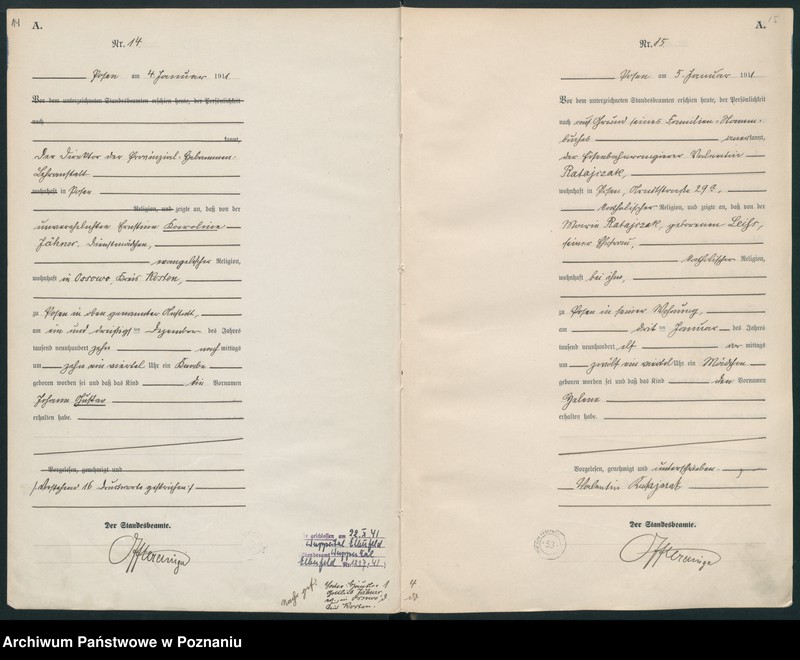 14
A.
Nr. 14
Posen am 4. Januar 1911
Vor dem unterzeichneten Standesbeamten erschien heute, der Persönlichkeit
nach
kannt,
der Direktor der Provinzial-Hebammen-
Lehranstalt
wohnhaft in Posen
Religion, und zeigte an, daß von der
unverehelichten Ernstine Karoline
Jähner, Dienstmädchen,
evangelischer Religion,
wohnhaft in Ossowo, Kreis Kosten,
zu Posen in oben genannter Anstalt,
am ein und dreißigsten Dezember des Jahres
tausend neunhundert zehn nachmittags
um zehn ein viertel Uhr ein Knabe
geboren worden sei und daß das Kind die Vornamen
Johann Gustav
erhalten habe.
Vorgelesen, genehmigt und
/: Vorstehend 16 Druckworte gestrichen :/
Der Standesbeamte.
geschlossen am 22. X 41
Wuppertal Elberfeld
Wuppertal
Elberfeld Nr. 1297/41
15
A.
Nr. 15
Posen am 5. Januar 1911
Vor dem unterzeichneten Standesbeamten erschien heute, der Persönlichkeit
nach auf Grund seines Familien-Stamm-
buches anerkannt,
der Eisenbahnrangierer Valentin
Ratajczak,
wohnhaft in Posen, Arndtstraße 29
katholischer Religion, und zeigte an, daß von der
Maria Ratajczak, geborenen
seiner Ehefrau,
katholischer Religion,
wohnhaft bei ihm,
zu Posen in seiner Wohnung,
am dritten Januar des Jahres
tausend neunhundert elf vormittags
um zwölf ein viertel Uhr ein Mädchen
geboren worden sei und daß das Kind den Vornamen
Helene
erhalten habe.
Vorgelesen, genehmigt und unterschrieben
Valentin Ratajczak
Der Standesbeamte.
Archiwum Państwowe w Poznaniu